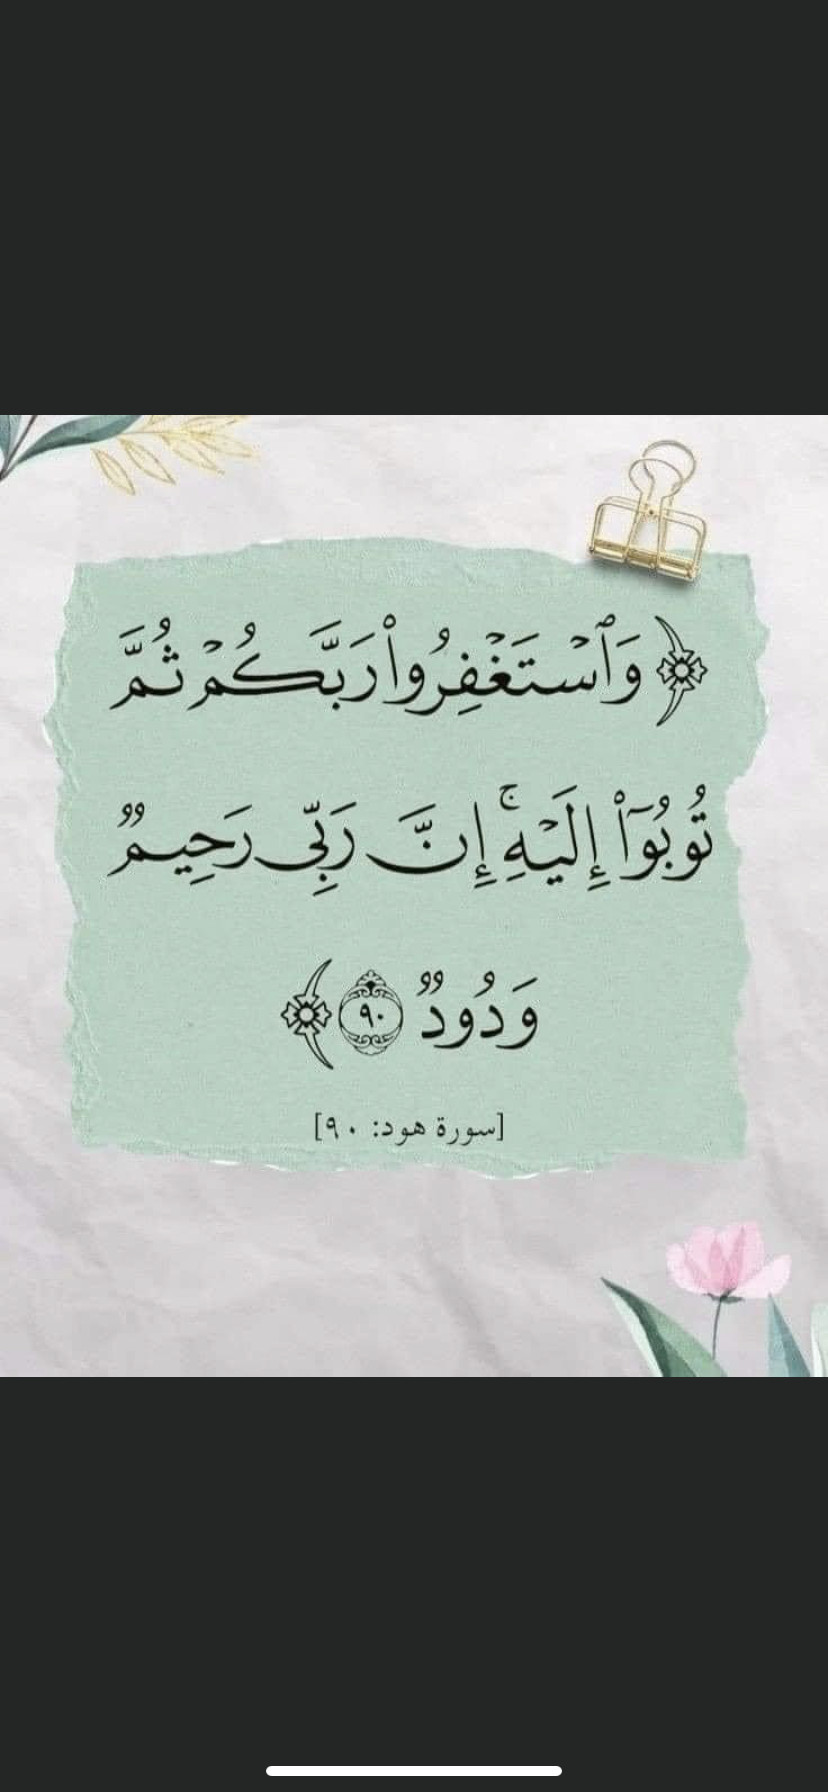 ﴿ وَٱسْتَغْفِرُوا۟ رَبَّكُمْ ثُمَّ
تُوبُوٓا۟ إِلَيْهِ ۚ إِنَّ رَبِّى رَحِيمٌ
وَدُودٌ ٩٠ ﴾
[سورة هود: ٩٠]